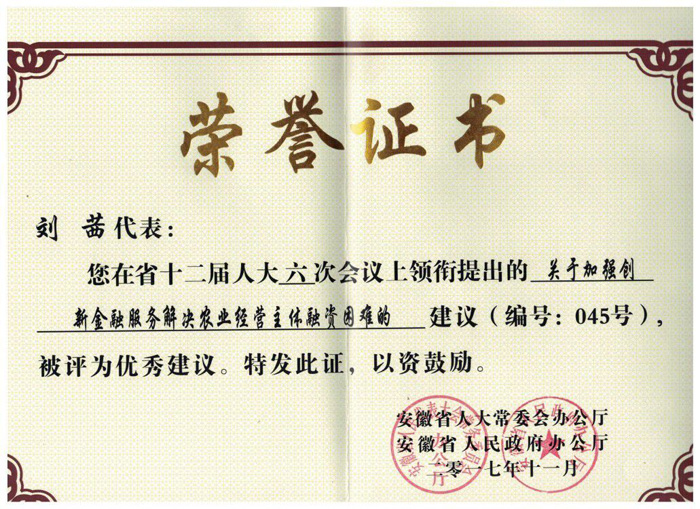 荣誉证书
刘茜代表：
您在省十二届人大六次会议上领衔提出的 关于加强创
新金融服务解决农业经营主体融资困难的 建议（编号：045号），
被评为优秀建议。特发此证，以资鼓励。
安徽省人大常委会办公厅
安徽省人民政府办公厅
二零一七年十一月